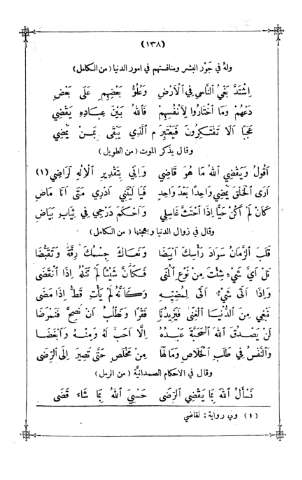 (١٣٨)
وله في جور البشر ومنافستهم في امور الدنيا (من الكامل)
اِشْتَدَّ بَغْيُ النَّاسِ فِي الْأَرْضِ وَعُلُوُّ بَعْضِهِمِ عَلَى بَعْضِ
دَعْهُمْ وَمَا اخْتَارُوا لِأَنْفُسِهِمْ فَاللّٰهُ بَيْنَ عِبَادِهِ يَقْضِي
عَجَبًا أَلَا تَفْتَكِرُونَ فَيَعْتَبِرَ الَّذِي يَبْقَى بِمَنْ يَمْضِي
وقال يذكر الموت (من الطويل)
أَقُولُ وَيَقْضِي اللهُ مَا هُوَ قَاضِي وَإِنِّي بِتَقْدِيرِ الْإِلٰهِ لَرَاضِي (١)
أَرَى الْخَلْقَ يَمْضِي وَاحِدًا بَعْدَ وَاحِدٍ فَيَا لَيْتَنِي أَدْرِي مَتَى أَنَا مَاضِ
كَأَنْ لَمْ أَكُنْ حَيًّا إِذَا احْتَثَّ غَاسِلِي وَأَحْكَمَ دَرْجِي فِي ثِيَابِ بَيَاضِ
وقال في زوال الدنيا ومحبتها (من الكامل)
قَلَبَ الزَّمَانُ سَوَادَ رَأْسِكَ أَبْيَضَا وَنَعَاكَ جِسْمُكَ رِقَّةً وَتَقَبُّضَا
نَلْ أَيَّ شَيْءٍ شِئْتَ مِنْ نَوْعِ الْمُنَى فَكَأَنَّ شَيْئًا لَمْ تَنَلْهُ إِذَا انْقَضَى
وَإِذَا أَتَى شَيْءٌ أَتَى لِمُضِيِّهِ وَكَأَنَّهُ لَمْ يَأْتِ قَطُّ إِذَا مَضَى
نَبْغِي مِنَ الدُّنْيَا الْغِنَى فَيَزِيدُنَا فَقْرًا وَنَطْلُبُ أَنْ نَصِحَّ فَنَمْرَضَا
لَنْ يَصْدُقَ اللهَ الْمَحَبَّةَ عَبْدُهُ إِلَّا أَحَبَّ لَهُ وَمِنْهُ وَأَبْغَضَا
وَالنَّفْسُ فِي طَلَبِ الْخَلَاصِ وَمَا لَهَا مِنْ مَخْلَصٍ حَتَّى تَصِيرَ إِلَى الرِّضَى
وقال في الاحكام الصمدانية (من الرمل)
نَسْأَلُ اللهَ بِمَا يَقْضِي الرِّضَى حَسْبِيَ اللهُ بِمَا شَاءَ قَضَى
(١) وفي رواية: لقاضي